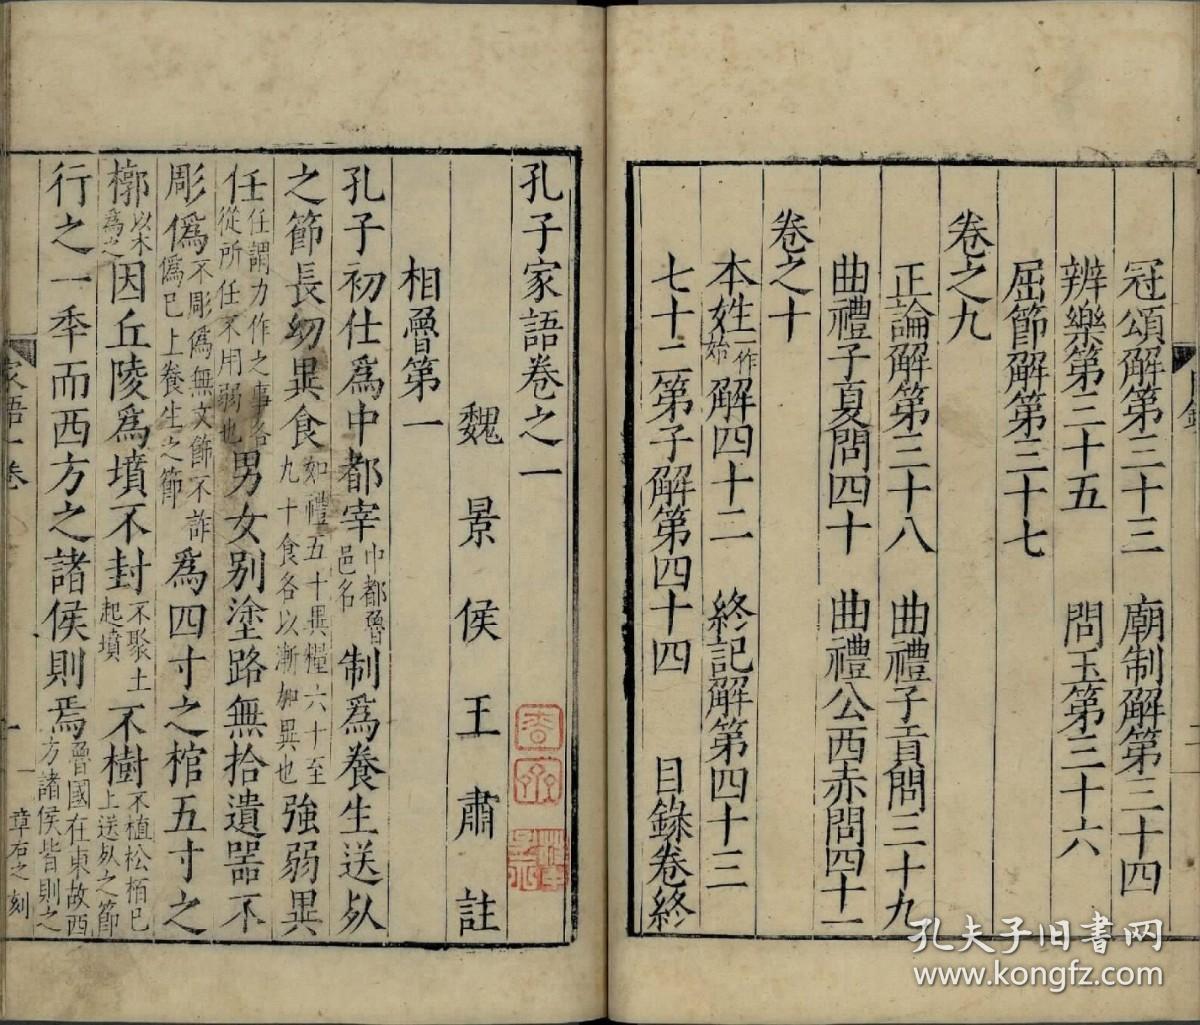 冠頌解第三十三　廟制解第三十四
辨樂第三十五　問玉第三十六
屈節解第三十七
卷之九
正論解第三十八　曲禮子貢問三十九
曲禮子夏問四十　曲禮公西赤問四十一
卷之十
本姓一作姓始解四十二　終記解第四十三
七十二第子解第四十四　目錄卷終
孔子家語卷之一
魏景侯王肅註
相魯第一
孔子初仕爲中都宰中都魯邑名制爲養生送死
之節長幼異食如禮五十異糧六十至九十食各以漸加異也強弱異
任任謂力作之事各從所任不用弱也男女别塗路無拾遺器不
彫僞不彫僞無文飾不詐僞已上養生之節爲四寸之棺五寸之
槨以木爲之因丘陵爲墳不封不聚土起墳不樹不植松栢已上送死之節
行之一年而西方之諸侯則焉魯國在東故西方諸侯皆則之
家語一卷
一
章右之刻
孔夫子旧書网
www.kongfz.com